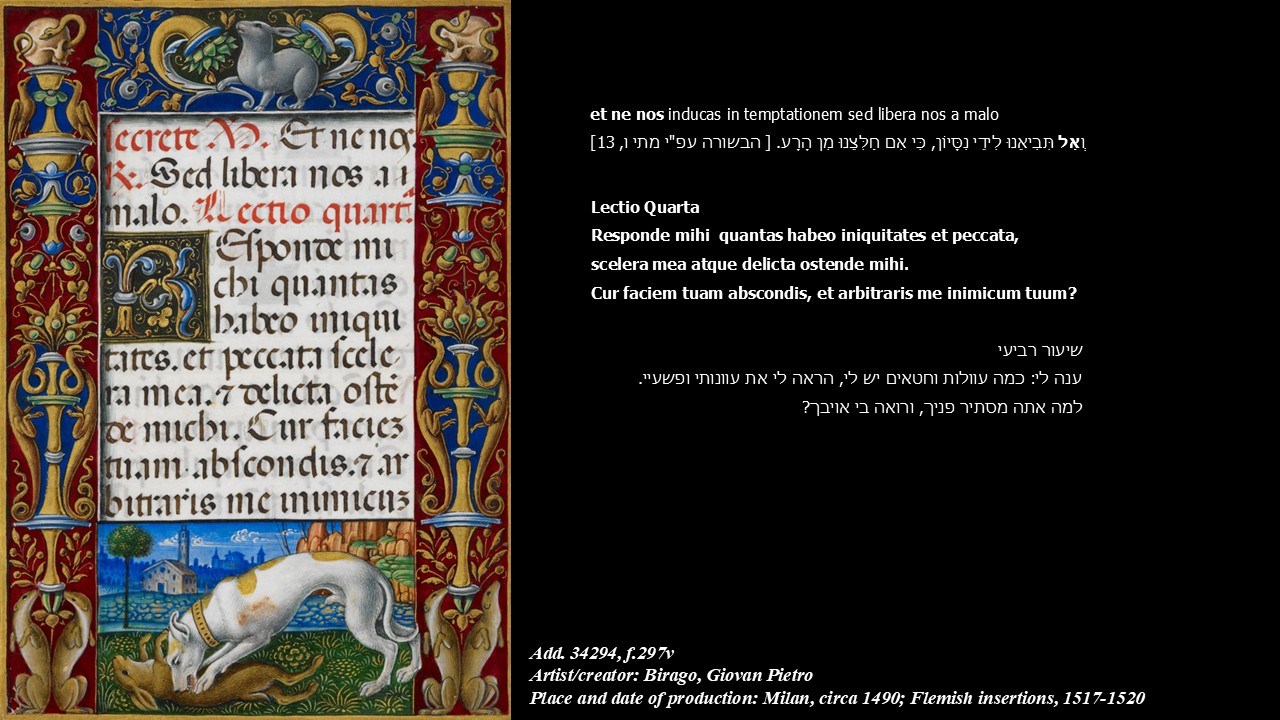 secrete V. Et ne nos
R. Sed libera nos a
malo. Lectio quart
REsponde mi
chi quantas
habeo iniqui
tates. et peccata scele
ra mea. ⁊ delicta ostē
de michi. Cur faciez
tuam abscondis. ⁊ ar
bitraris me inimicuz
et ne nos inducas in temptationem sed libera nos a malo
וְאַל תְּבִיאֵנוּ לִידֵי נִסָּיוֹן, כִּי אִם חַלְּצֵנוּ מִן הָרָע. [ הבשורה עפ"י מתי ו, 13]
Lectio Quarta
Responde mihi quantas habeo iniquitates et peccata,
scelera mea atque delicta ostende mihi.
Cur faciem tuam abscondis, et arbitraris me inimicum tuum?
שיעור רביעי
ענה לי: כמה עוולות וחטאים יש לי, הראה לי את עוונותי ופשעיי.
למה אתה מסתיר פניך, ורואה בי אויבך?
Add. 34294, f.297v
Artist/creator: Birago, Giovan Pietro
Place and date of production: Milan, circa 1490; Flemish insertions, 1517-1520